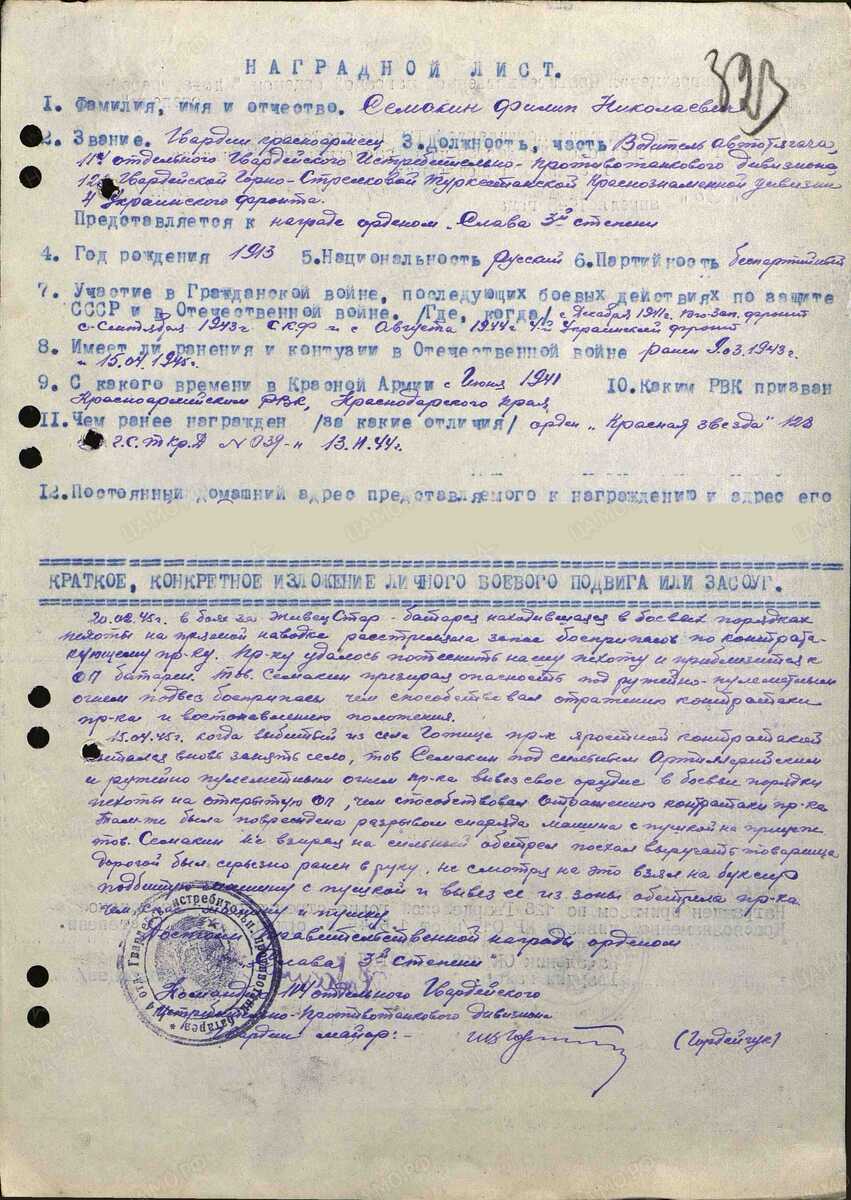 323
НАГРАДНОЙ ЛИСТ.
1. Фамилия, имя и отчество. Семакин Филип Николаевич
2. Звание. Гвардии красноармеец 3. Должность, часть Водитель автотягача,
114 отдельного Гвардейского Истребительно-Противотанкового дивизиона,
128 Гвардейской Горно-Стрелковой Туркестанской Краснознаменной дивизии
4 Украинского фронта.
Представляется к награде орденом "Слава 3й степени
4. Год рождения 1913 5. Национальность русский 6. Партийность беспартийный
7. Участие в Гражданской войне, последующих боевых действиях по защите
СССР и в Отечественной войне. /Где, когда/ с Декабря 1941г. Юго-Зап. фронт
с Сентября 1943г. СКФ и с Августа 1944г. 4й Украинский фронт
8. Имеет ли ранения и контузии в Отечественной войне ранен 9.03.1943г.
и 15.04.1945г.
9. С какого времени в Красной Армии с Июня 1941 10. Каким РВК призван
Красноармейским РВК, Краснодарского края
11. Чем ранее награжден /за какие отличия/ орден "Красная звезда" 128
г.с.ткр.д №039-н 13.11.44г.
12. Постоянный домашний адрес представляемого к награждению и адрес его
КРАТКОЕ, КОНКРЕТНОЕ ИЗЛОЖЕНИЕ ЛИЧНОГО БОЕВОГО ПОДВИГА ИЛИ ЗАСОУГ.
в боях за Живец Стар - батарея находившаяся в боевых порядках
пехоты на прямой наводке расстреляла запас боеприпасов по контрата-
кующему пр-ку. Пр-ку удалось потеснить нашу пехоту и приблизится к
ОП батареи. Тов. Семакин презирая опасность под ружейно-пулеметным
огнем подвез боеприпасы чем способствовал отражению контратаки
пр-ка и востоновлению положения.
15.04.45г. когда выбитый из села пр-к яростной контратакой
пытался вновь занять село, тов Семакин под сильным Артиллерийским
и ружейно пулеметным огнем пр-ка вывез свое орудие в боевые порядки
пехоты на открытую ОП, чем способствовал отражению контратаки пр-ка
была повреждена разрывом снаряда машина с пушкой на прицепе
тов. Семакин не взирая на сильный обстрел поехал выручать товарища
дорогой был серьезно ранен в руку, не смотря на это взял на буксир
подбитую машину с пушкой и вывез ее из зоны обстрела пр-ка
чем спас машину и пушку.
Достоин правительственной награды орденом
"Слава 3й степени
Командир 114 отдельного Гвардейского
Истребительно-Противотанкового Дивизиона
гвардии майор:- (Гордейчук)